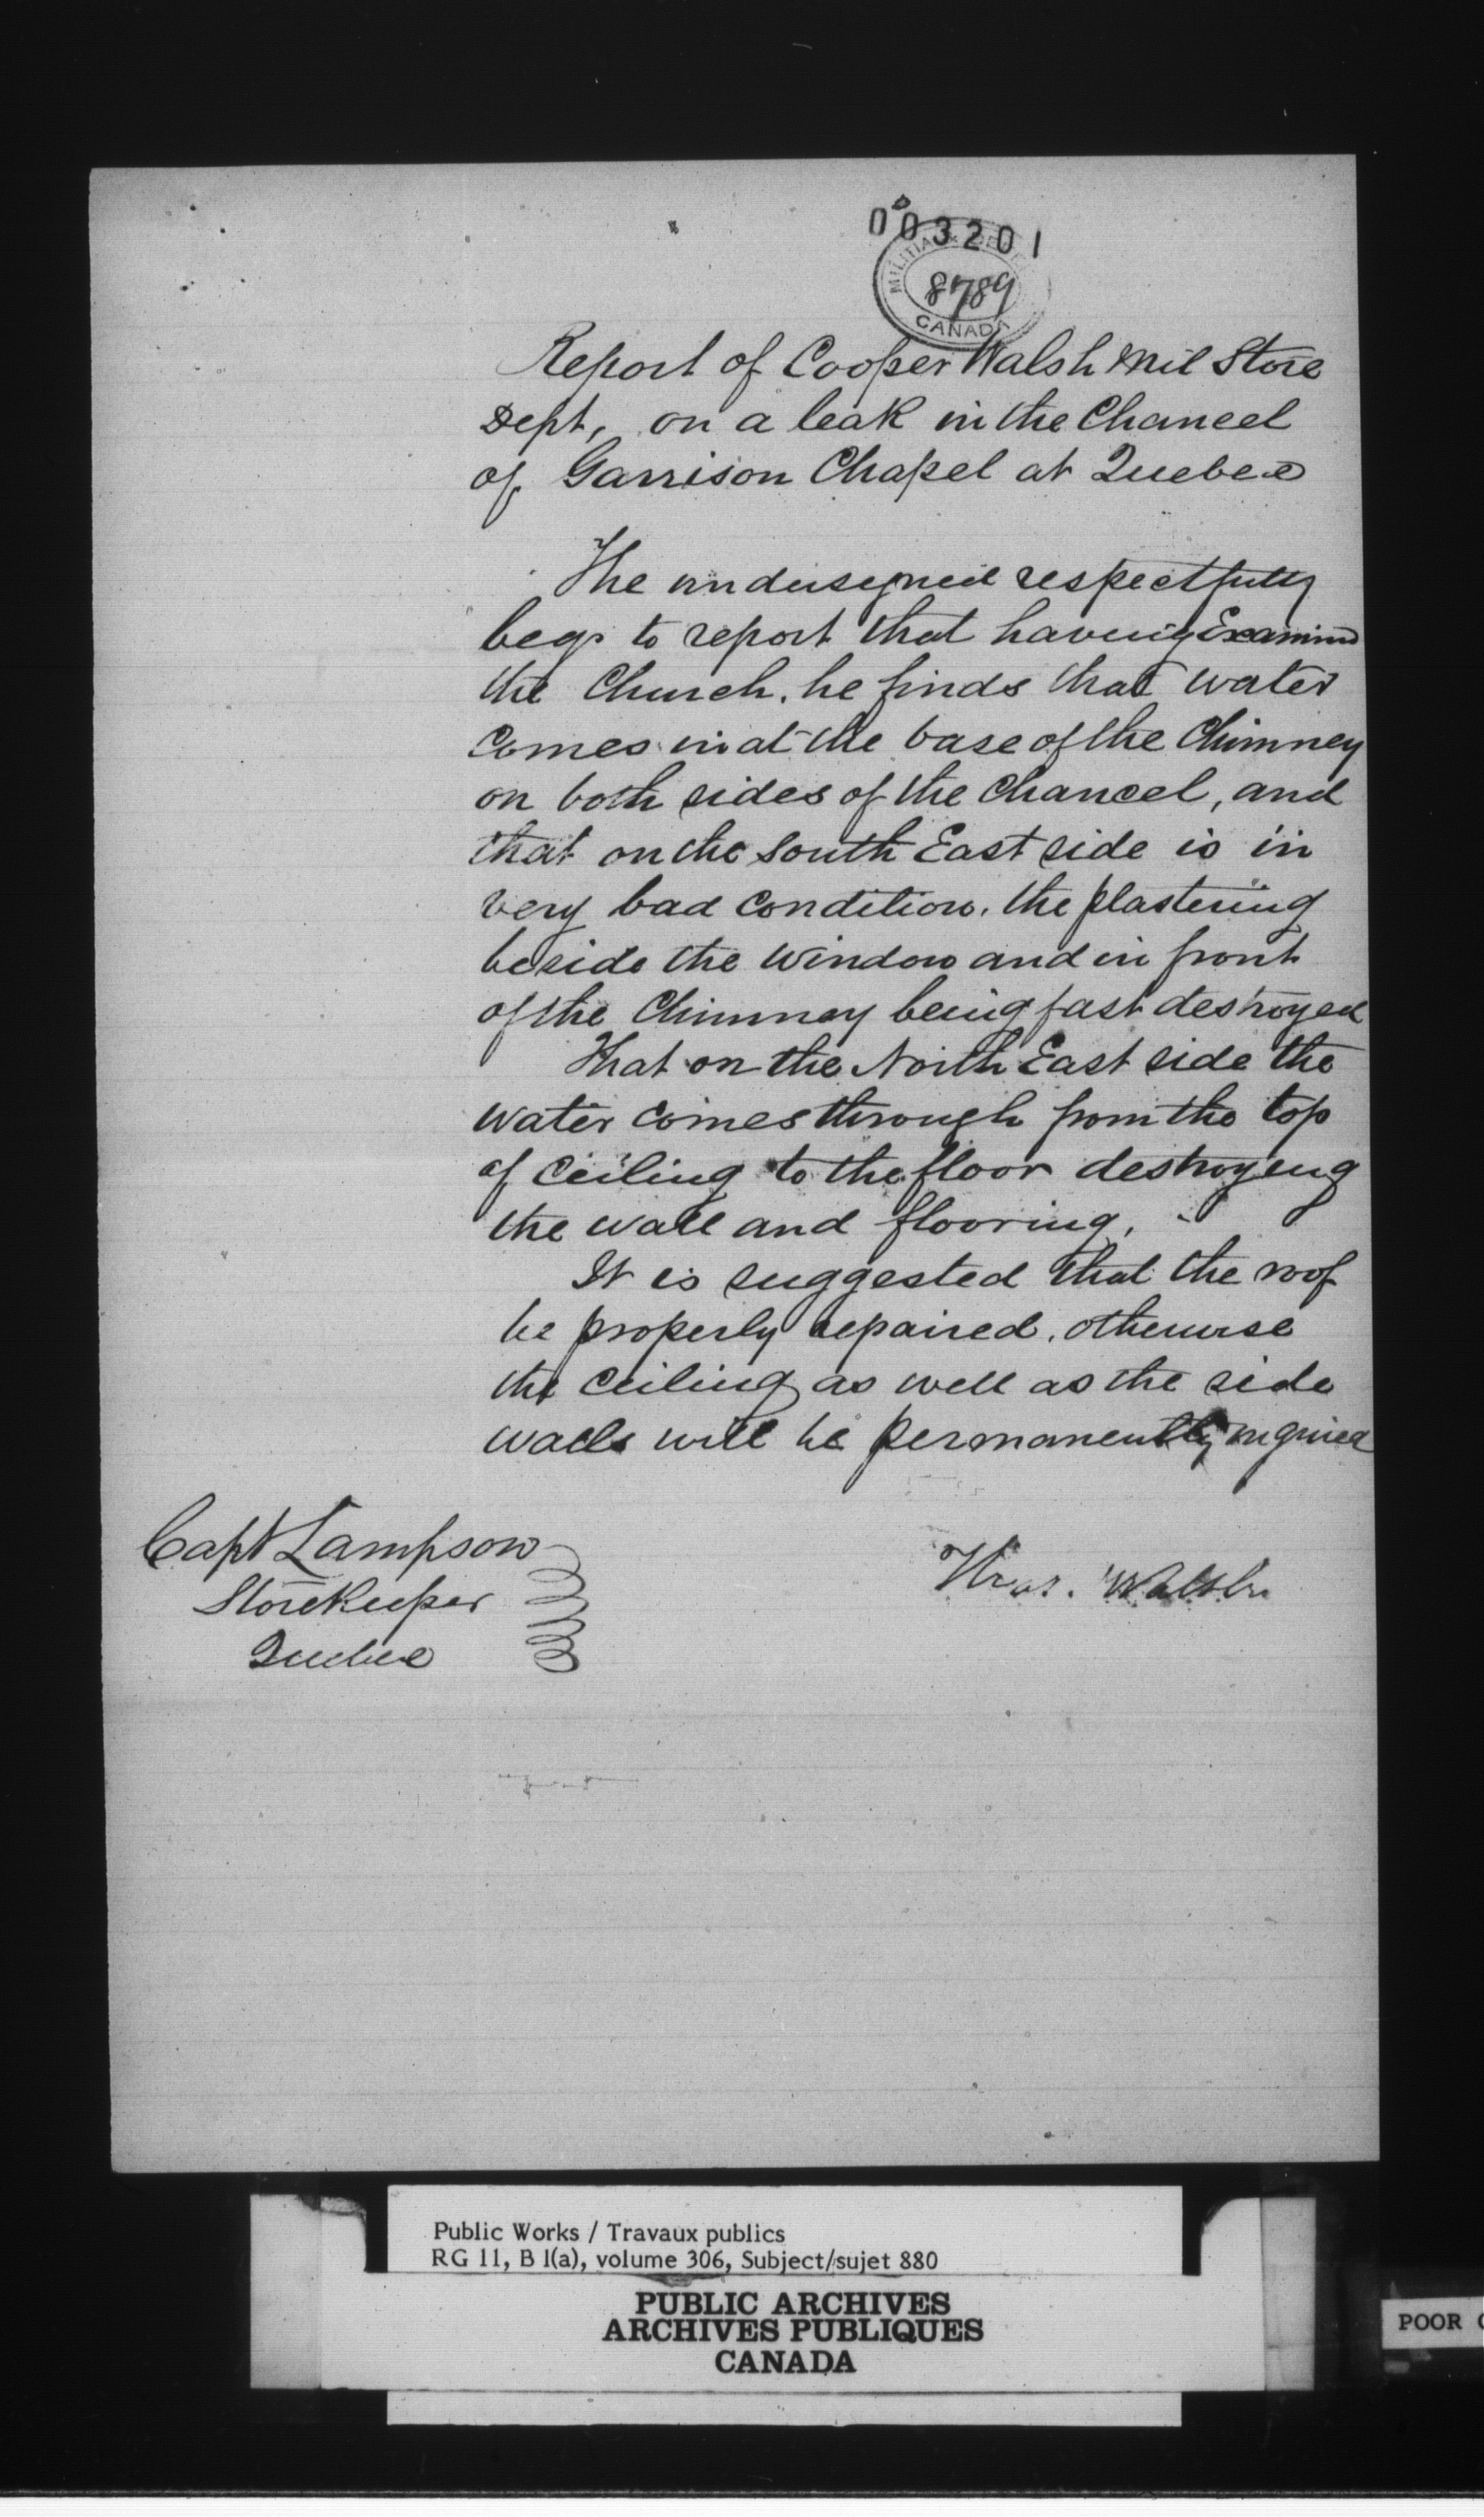 003201
MILITIA & DE
8789
CANADA
Report of Cooper Walsh Mil Store
Dept, on a leak in the Chancel
of Garrison Chapel at Quebec
The undersigned respectfully
begs to report that having Examined
the Church, he finds that water
Comes in at the base of the Chimney
on both sides of the Chancel, and
that on the South East side is in
very bad Condition, the plastering
beside the window and in front
of the Chimney being fast destroyed
That on the North East side the
water comes through from the top
of Ceiling to the floor destroyeng
the wall and flooring,
It is suggested that the roof
be properly repaired, otherwise
the Ceiling as well as the side
walls will be permanently
Capt Lampson
Storekeeper
Quebec
Thos. Walsh
Public Works / Travaux publics
RG 11, B 1(a), volume 306, Subject/sujet 880
PUBLIC ARCHIVES
ARCHIVES PUBLIQUES
CANADA
POOR